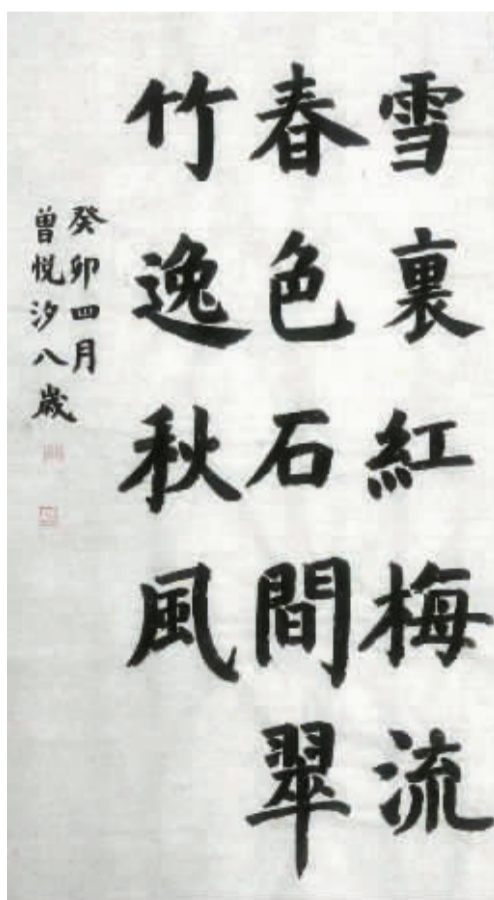 雪裏紅梅流
春色石間翠
竹逸秋風
癸卯四月
曾悦汐八歲